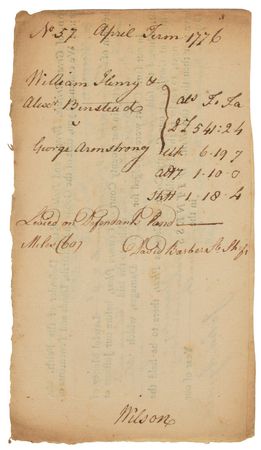 No. 57. April Term 1776
William Henry &
Alexr. Binstead
v
George Armstrong
als Fi. Fa
£ 541:2:4
Clk 6.19.7
Att'y 1.10.0
Shff 1.18.4
Levied on Defendants Land
Miles (60)
David Barber St Shff
Wilson